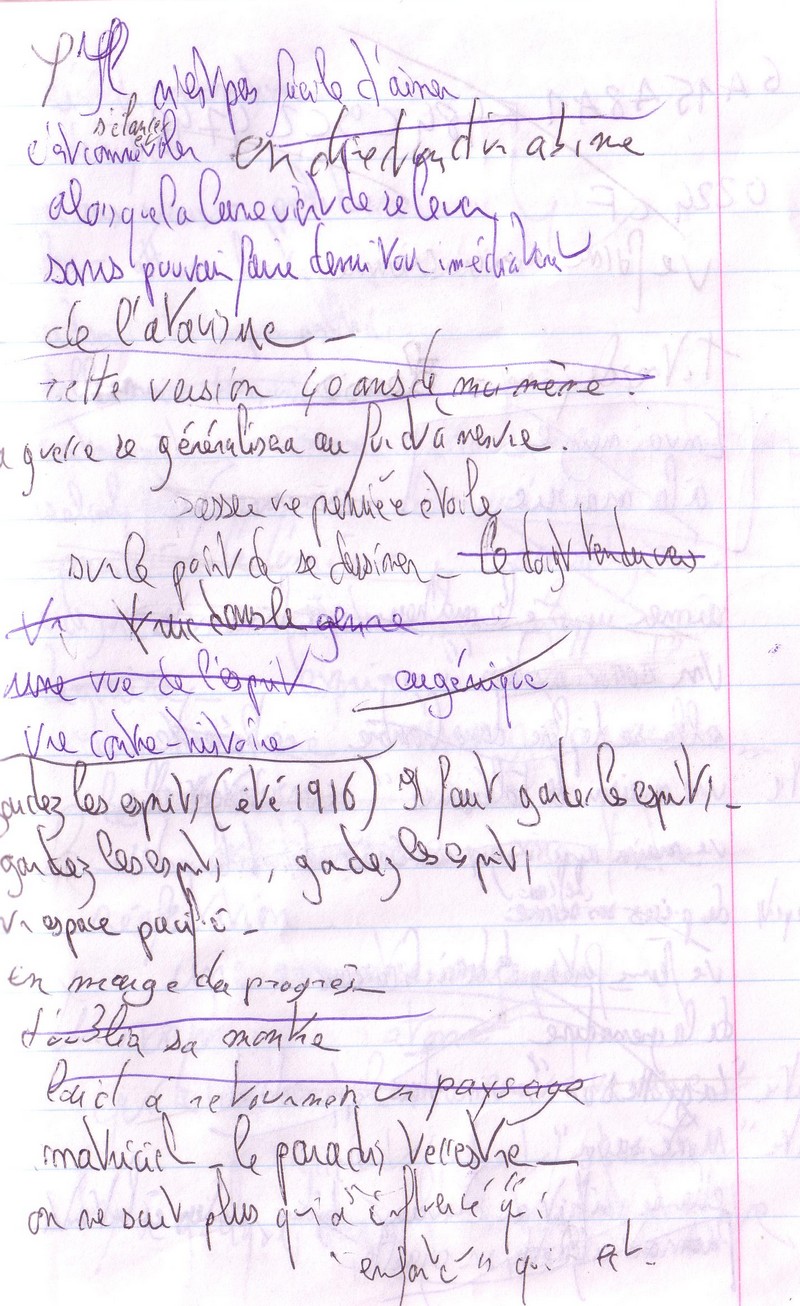 Il n'est pas facile d'aimer
s'élancer
en direction d'un abîme
alors que la lune vient de se lever
sans pouvoir faire demi tour immédiatement
de l'atavisme –
cette version 40 ans de moi même.
a guerre se généralisea au fur et à mesure.
première étoile
sur le point de se dessiner – le doigt tendu vers
dans le genre
une vue de l'esprit eugénique
une contre-histoire
gardez les esprits (été 1916) Il faut garder les esprits –
gardez les esprits, gardez les esprits
un espace pacifié –
en marge du progrès –
d'oublier sa montre
à retourner un paysage
matriciel – le paradis terrestre –
on ne sait plus qui a "influencé" qui
"enfanté" qui est.